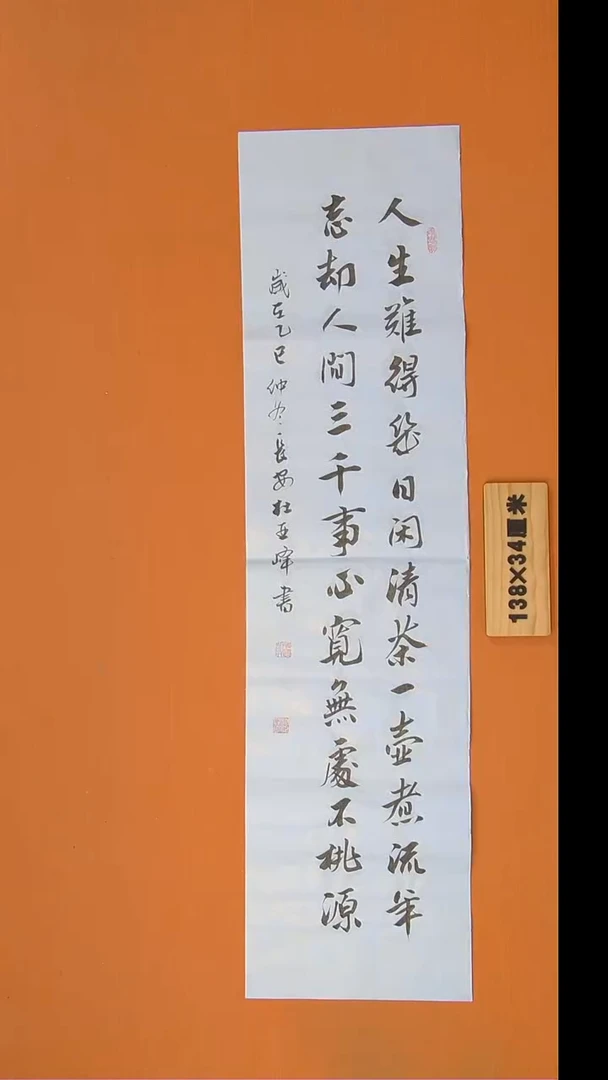 人生難得幾日闲清茶一壶煮流年
忘却人間三千事心寬無處不桃源
歲在乙巳仲冬長安杜亚峰書
138×34厘米